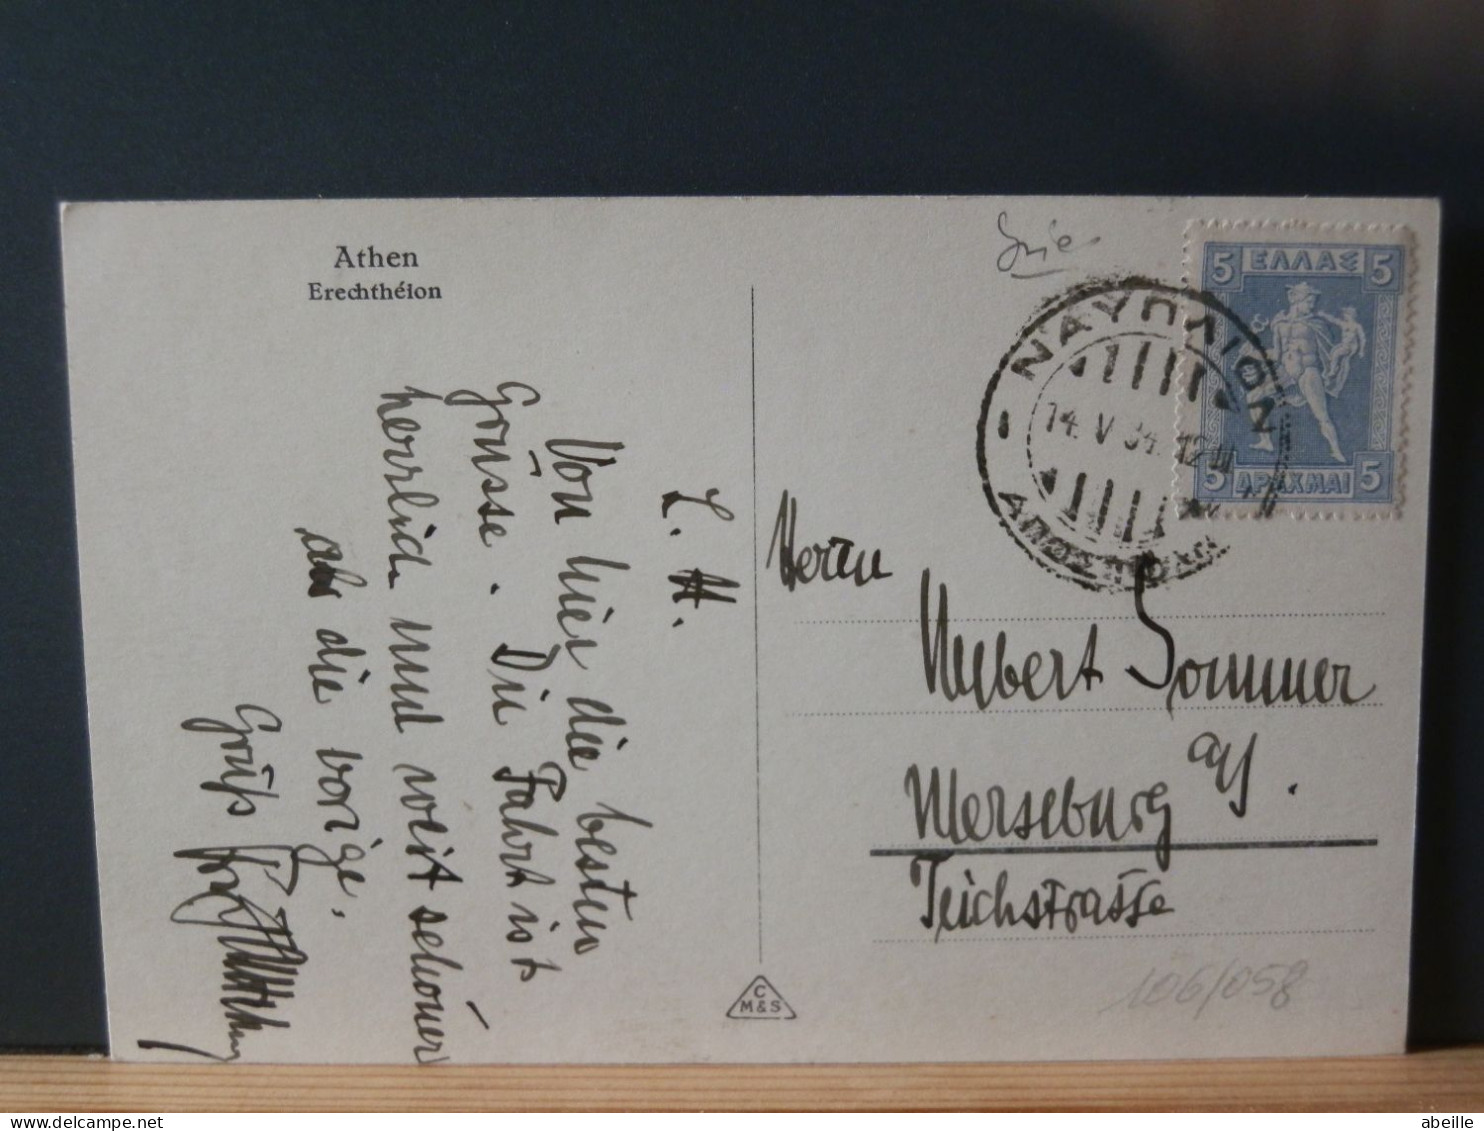 Athen
Erechthéion
L. H.
Von hier die besten
Grüsse. Die Fahrt ist
herrlich und weit schöner
als die vorige.
Gruß
5 ΕΛΛΑΣ 5
5 ΔΡΑΧΜΑΙ 5
ΝΑΥΠΛΙΟΝ
14. V 34. 12
Herrn
Hubert Sommer
Merseburg a/S.
Teichstrasse
C
M&S
106/058
abeille